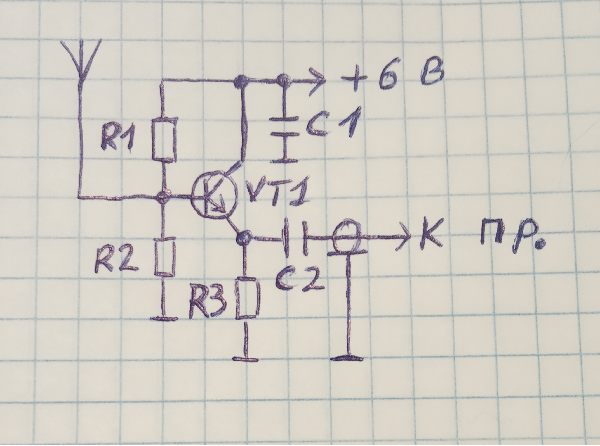 +6 В
R1
C1
VT1
R2
К пр.
C2
R3